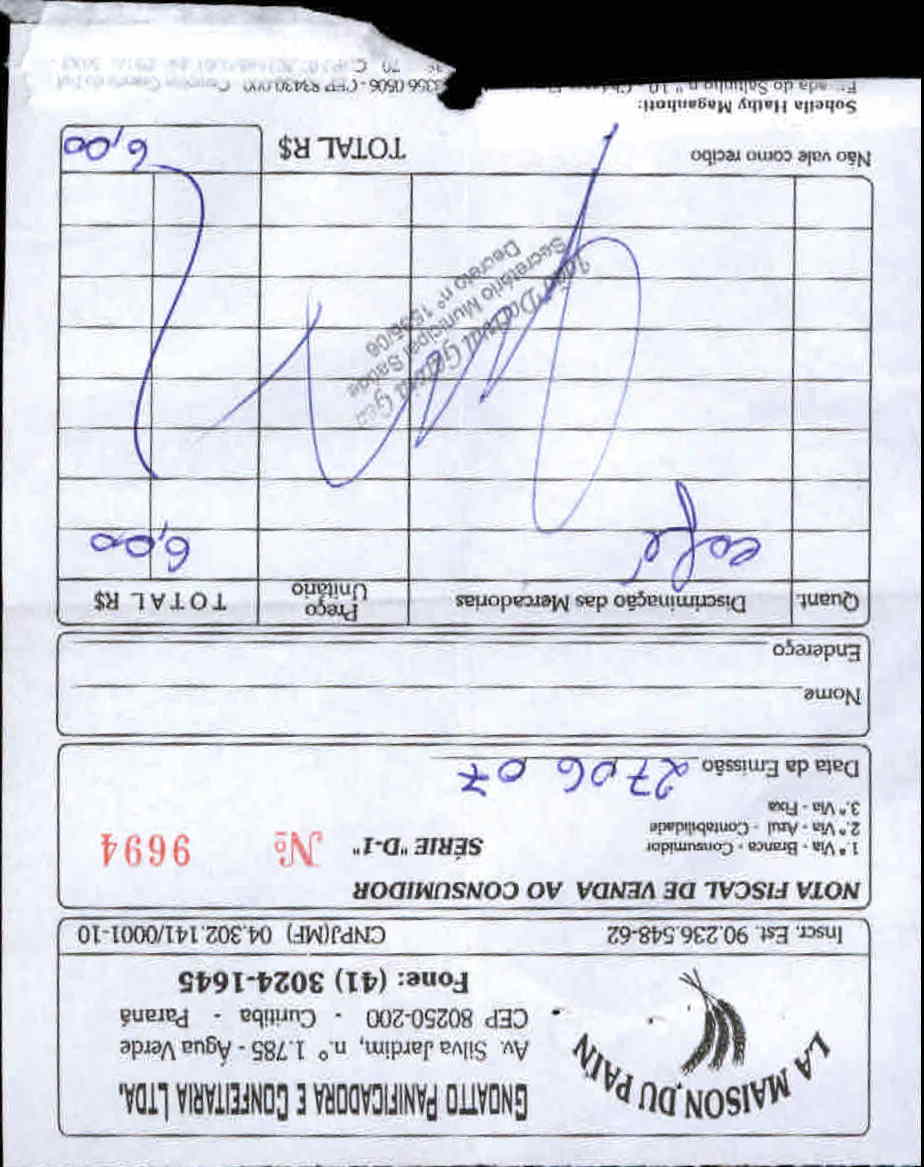 LA MAISON DU PAIN
GNOATTO PANIFICADORA E CONFEITARIA LTDA.
Av. Silva Jardim, n.º 1.785 - Água Verde
CEP 80250-200 - Curitiba - Paraná
Fone: (41) 3024-1645
Inscr. Est. 90.236.548-62 CNPJ(MF) 04.302.141/0001-10
NOTA FISCAL DE VENDA AO CONSUMIDOR
1.ª Via - Branca - Consumidor
2.ª Via - Azul - Contabilidade
3.ª Via - Fixa
SÉRIE "D-1" Nº 9694
Data da Emissão 27 06 07
Nome
Endereço
Quant. Discriminação das Mercadorias Preço Unitário TOTAL R$
café 6,00
Secretário Municipal Saúde
Decreto nº
Não vale como recibo TOTAL R$ 6,00
Sobella Hathy Maganhoti:
do Saltinho n.º 10 3356 0506 - CEP 83430.000